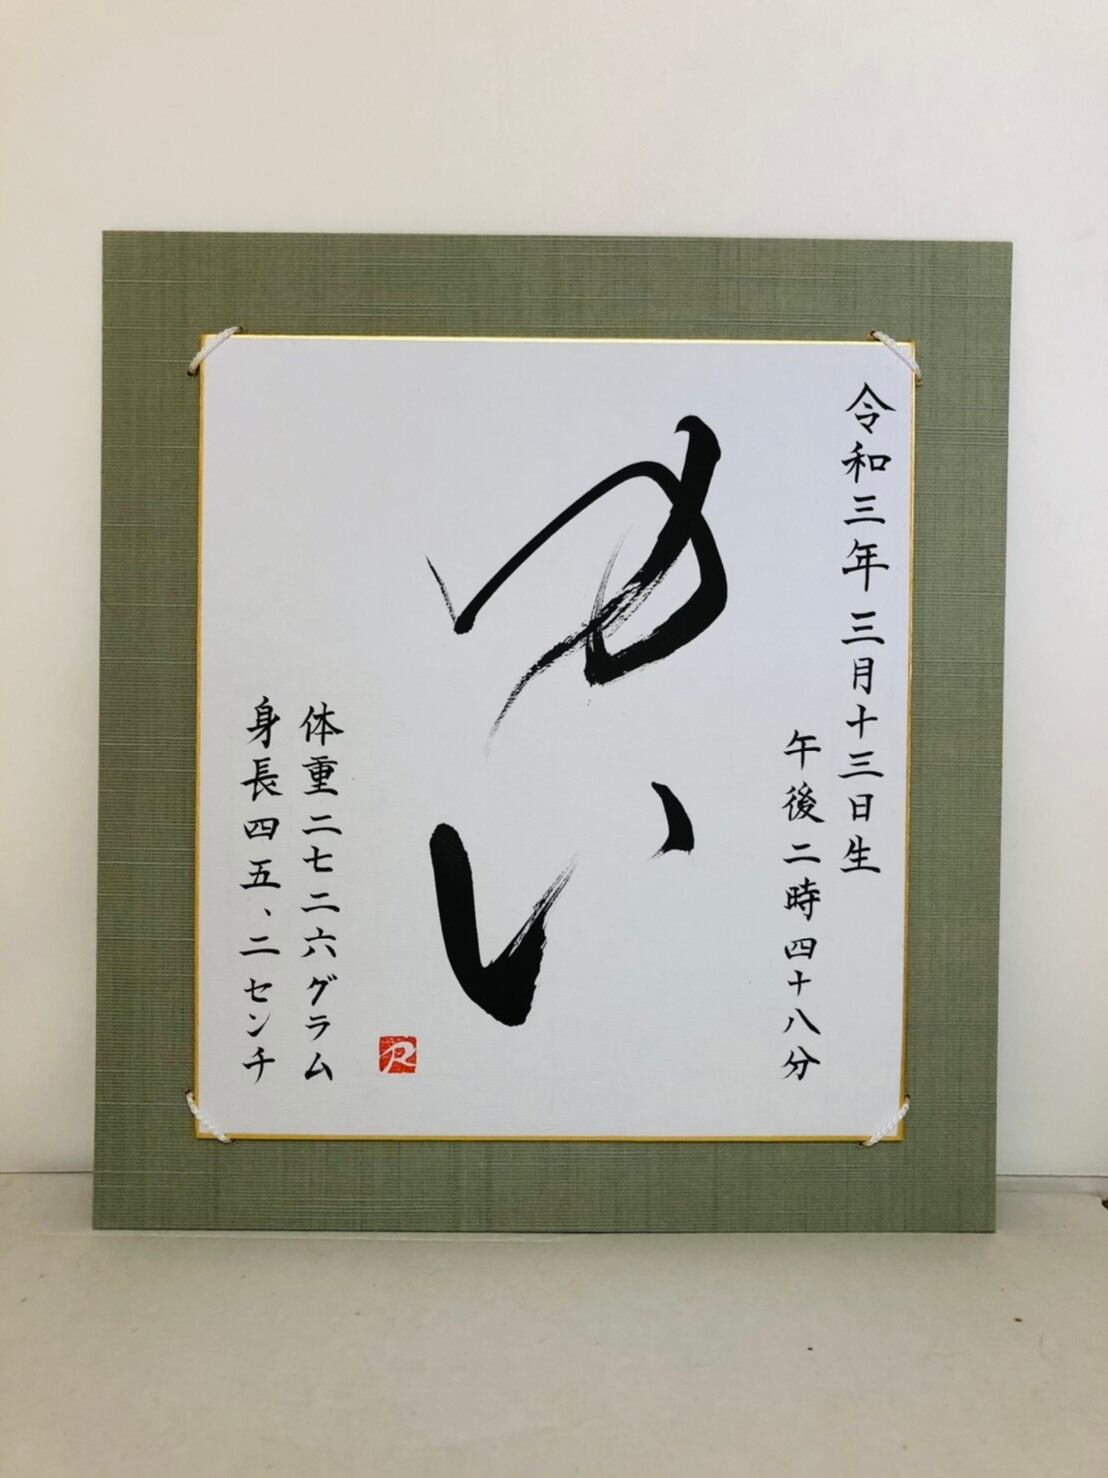 令和三年三月十三日生
午後二時四十八分
ゆい
R
体重二七二六グラム
身長四五、二センチ